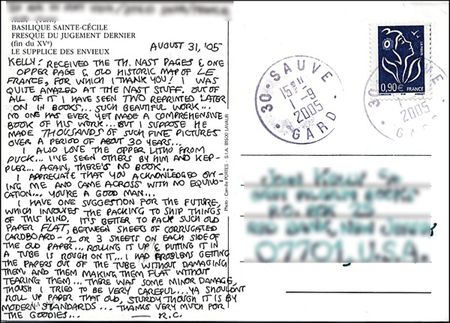 BASILIQUE SAINTE-CÉCILE
FRESQUE DU JUGEMENT DERNIER
(fin du XVe)
LE SUPPLICE DES ENVIEUX
AUGUST 31, '05
KELLY: RECEIVED THE TH. NAST PAGES & ONE
OPPER PAGE & OLD HISTORIC MAP OF LE
FRANCE, FOR WHICH I THANK YOU! I WAS
QUITE AMAZED AT THE NAST STUFF. OUT OF
ALL OF IT I HAVE SEEN TWO REPRINTED LATER
ON IN BOOKS... SUCH BEAUTIFUL WORK...
NO ONE HAS EVER YET MADE A COMPREHENSIVE
BOOK OF HIS WORK... BUT I SUPPOSE HE
MADE THOUSANDS OF SUCH FINE PICTURES
OVER A PERIOD OF ABOUT 30 YEARS...
I ALSO LOVE THE OPPER LITHO FROM
PUCK... I'VE SEEN OTHERS BY HIM AND KEP-
PLER... AGAIN, THERE'S NO BOOK...
I APPRECIATE THAT YOU ACKNOWLEDGED OW-
ING ME AND CAME ACROSS WITH NO EQUIVO-
CATION... YOU'RE A GOOD MAN...
I HAVE ONE SUGGESTION FOR THE FUTURE,
WHICH INVOLVES THE PACKING TO SHIP THINGS
OF THIS KIND. IT'S BETTER TO PACK SUCH OLD
PAPER FLAT, BETWEEN SHEETS OF CORRUGATED
CARDBOARD - 2 OR 3 SHEETS ON EACH SIDE OF
THE OLD PAPER... ROLLING IT UP & PUTTING IT IN
A TUBE IS ROUGH ON IT... I HAD PROBLEMS GETTING
THE PAPERS OUT OF THE TUBE WITHOUT DAMAGING
THEM AND THEM MAKING THEM FLAT WITHOUT
TEARING THEM... THERE WAS SOME MINOR DAMAGE,
THOUGH I TRIED TO BE VERY CAREFUL... YA SHOULDN'T
ROLL UP PAPER THAT OLD, STURDY THOUGH IT IS BY
MODERN STANDARDS... THANKS VERY MUCH FOR
THE GOODIES... — R.C.
Photo
S.I.A.
LAVAUR
30 - SAUVE
15H
1 - 9
2005
GARD
0,90 €
FRANCE
2005
GARD
07701 U.S.A.